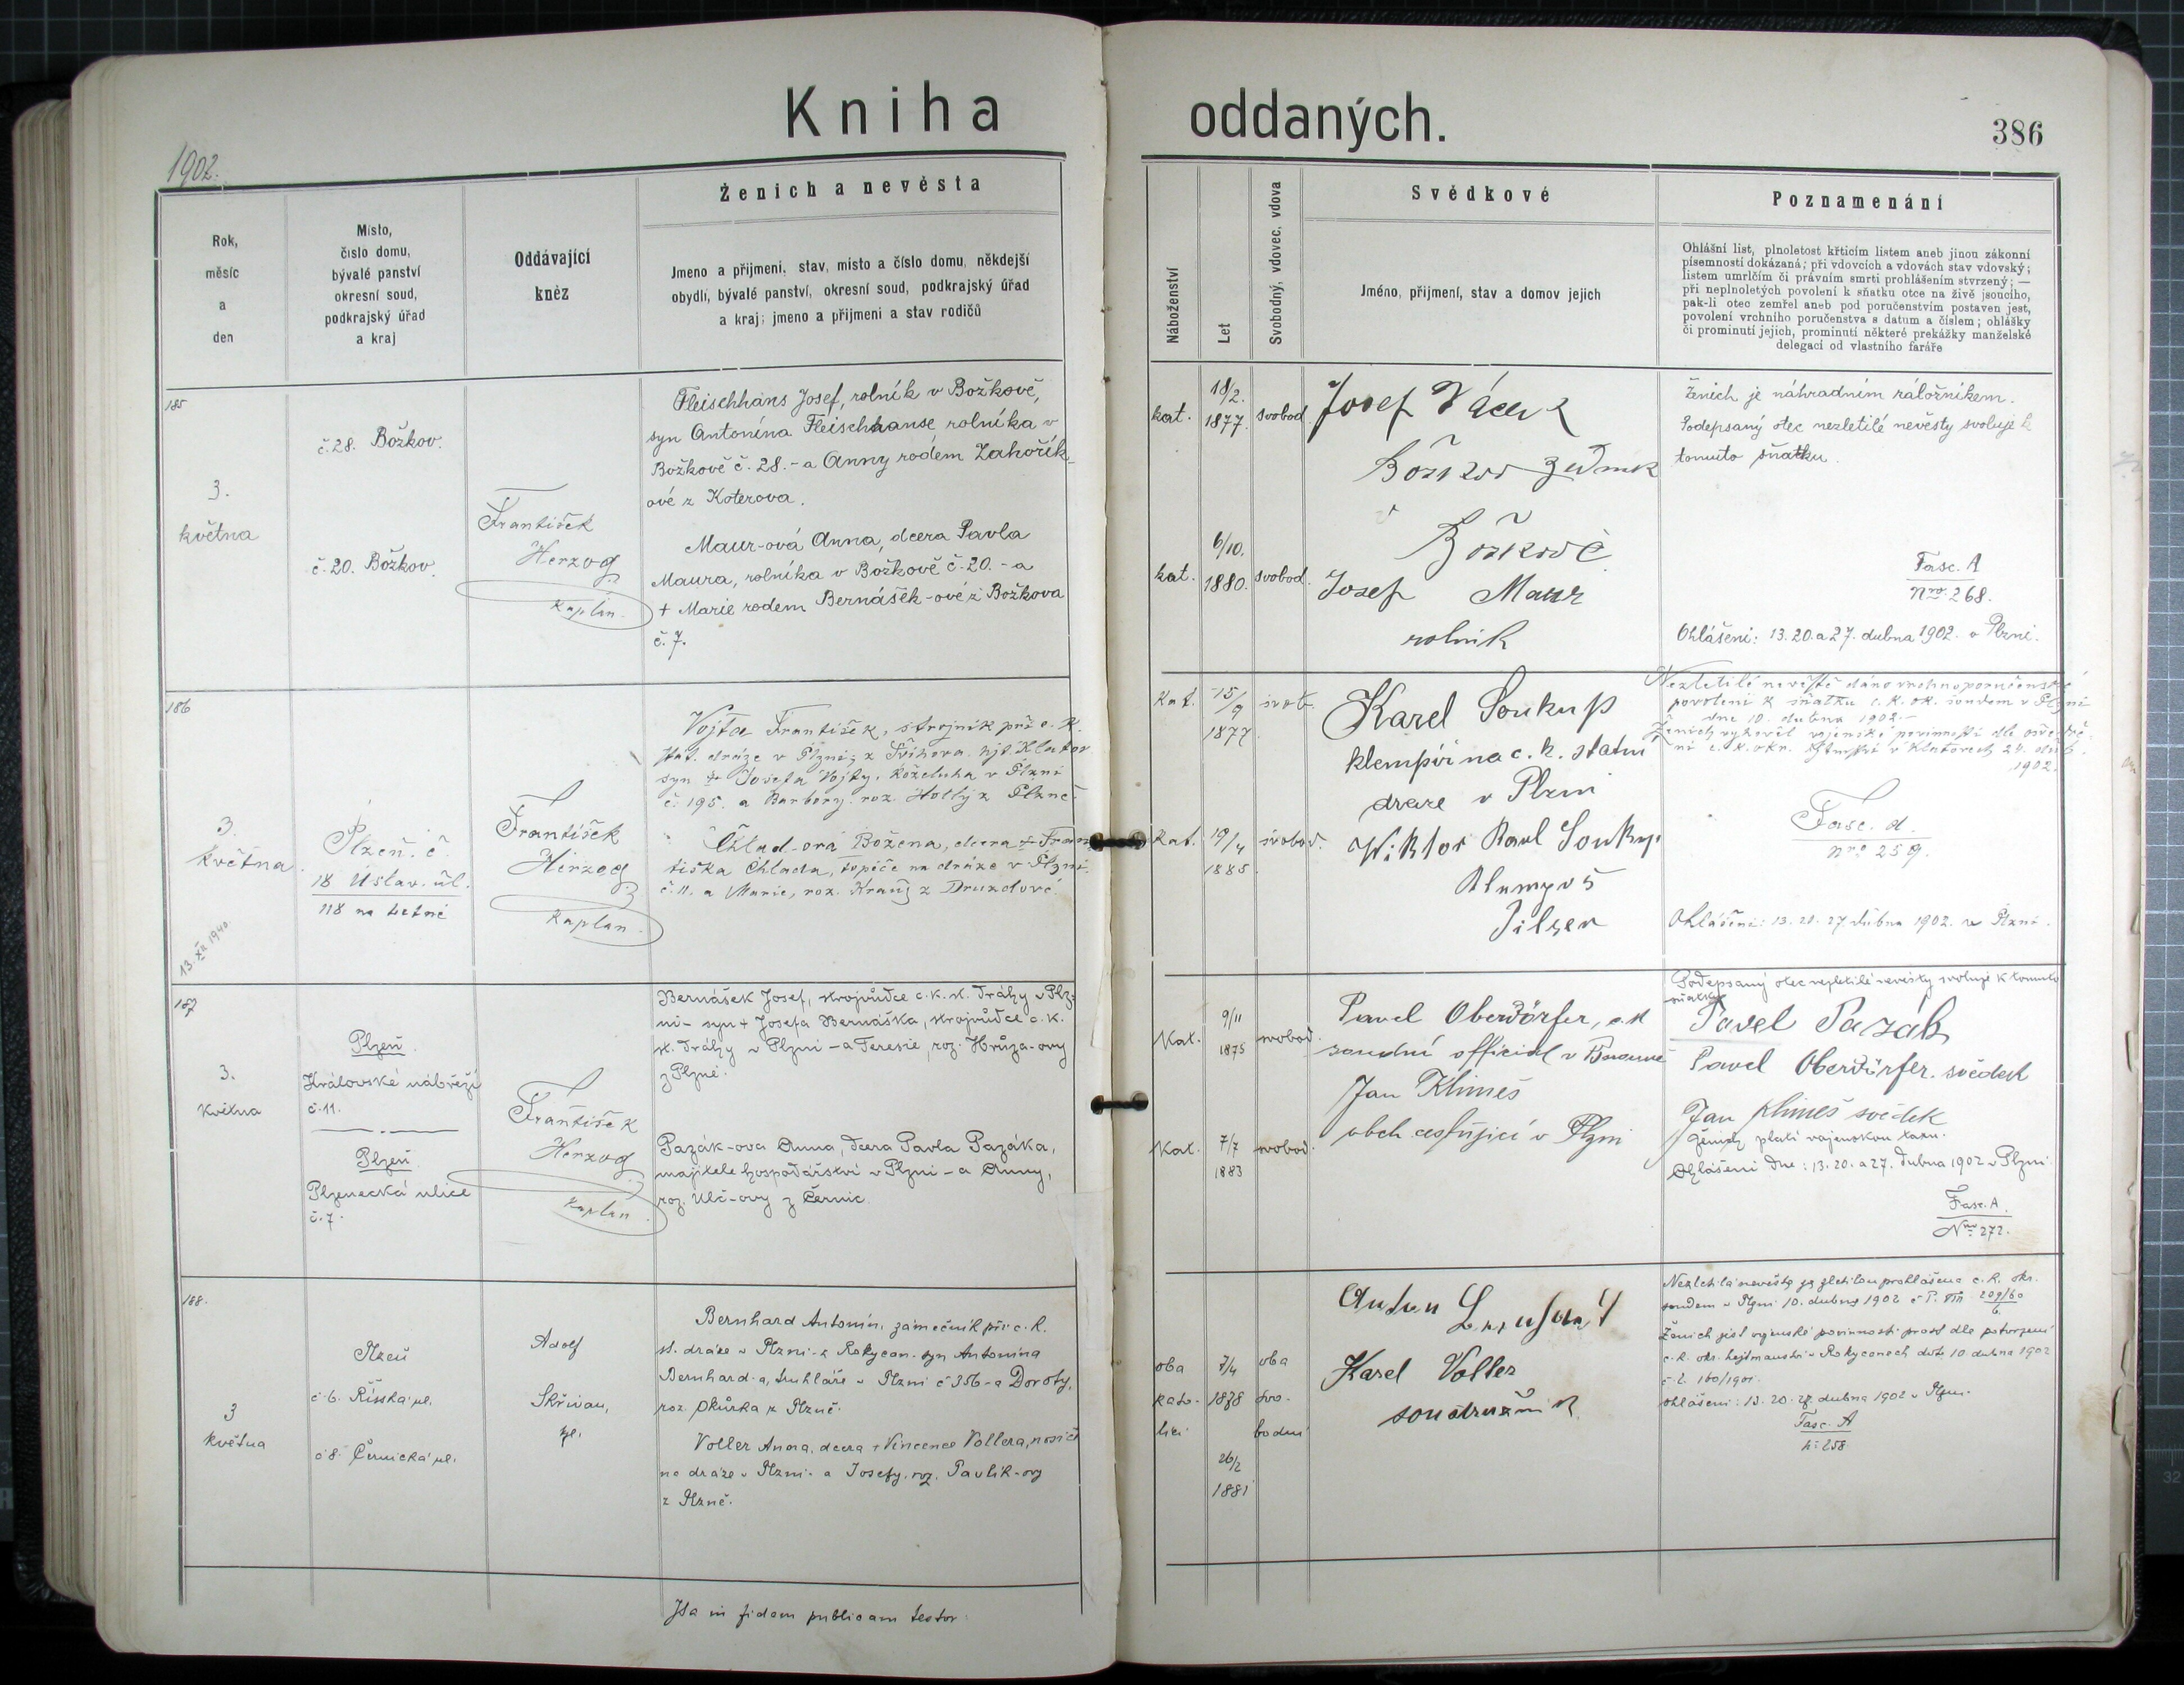 Kniha oddaných.
386
1902.
Rok, měsíc a den
Místo, číslo domu, bývalé panství okresní soud, podkrajský úřad a kraj
Oddávající kněz
Ženich a nevěsta
Jmeno a přijmeni, stav, místo a číslo domu, někdejší
obydlí, bývalé panství, okresní soud, podkrajský úřad
a kraj; jmeno a přijmeni a stav rodičů
Náboženství
Let
Svobodný, vdovec, vdova
Svědkové
Jméno, přijmení, stav a domov jejich
Poznamenání
Ohlášní list, plnoletost křticím listem aneb jinou zákonní
písemností dokázaná; při vdovcích a vdovách stav vdovský;
listem umrlčím či právním smrti prohlášením stvrzený; —
při neplnoletých povolení k sňatku otce na živě jsoucího,
pak-li otec zemřel aneb pod poručenstvím postaven jest,
povolení vrchního poručenstva s datum a číslem; ohlášky
či prominutí jejich, prominutí některé prekážky manželské
delegací od vlastního faráře
185
3.
května
č. 28. Božkov.
č. 20. Božkov.
František
Herzog
kaplan.
Fleischhans Josef, rolník v Božkově,
syn Antonína Fleischhanse rolníka v
Božkově č. 28. - a Anny rodem Zahořík-
ové z Koterova.
Maur-ová Anna, dcera Pavla
Maura, rolníka v Božkově č. 20. - a
+ Marie rodem Bernášek-ové z Božkova
č. 7.
kat.
18/2.
1877.
svobod
kat.
6/10.
1880.
svobod.
Josef
Božkově
Josef Maur
rolník
Ženich je náhradním záložníkem.
Podepsaný otec nezletilé nevěsty svoluje k
tomuto sňatku.
Fasc. A
Nro. 268.
Ohlášeni: 13. 20. a 27. dubna 1902. v Plzni.
186
3.
května.
13. XII 1940.
Plzeň. č.
18 Ustav. ul.
118 na Letné
František
Herzog
kaplan.
Vojta František, strojník při c. k.
stát. dráze v Plzni; z Švihova. hjt. Klatov
syn + Josefa Vojty, koželuha v Plzni
č. 195. a Barbory. roz. Hollý z Plzně.
Chlad-ová Božena, dcera + Fran-
tiška Chlada, topiče na dráze v Plzni.
č. 11. a Marie, roz. Kraus z Druzdové.
Kat.
15/9
1877
svob.
Kat.
19/4
1885.
svobod.
Karel Soukup
klempíř na c. k. statni
draze v Plzni
Wiktor Karl Soukup
Pilsen
Nezletilé nevěstě dáno vrchnoporučenské
povolení k sňatku c. k. ok. soudem v Plzni
dne 10. dubna 1902.-
Ženich vyhověl vojenské povinnosti dle osvědče-
ní c. k. okr. hejtmství v Klatovech 24. dub.
1902.
Fasc. d.
nro 259.
Ohlášeni: 13. 20. 27. dubna 1902. v Plzni.
187
3.
května
Plzeň.
Královské nábřeží
č. 11.
Plzeň.
Plzenecká ulice
č. 7.
František
Herzog
kaplan.
Bernášek Josef, strojvůdce c. k. st. dráhy v Plz-
ni - syn + Josefa Bernáška, strojvůdce c. k.
st. dráhy v Plzni - a Teresie, roz. Hrůza-ovy
z Plzně.
Pazák-ova Anna, dcera Pavla Pazáka,
majitele hospodářství v Plzni - a Anny,
roz. Ulč-ovy z Černic.
Kat.
9/11
1875
svobod.
Kat.
7/7
1883
svobod.
Pavel Oberdörfer, c. k
soudní official v
Jan Klimeš
obch. cestující v Plzni
Podepsaný otec nezletilé nevěsty svoluje k tomuto
sňatku
Pavel Pazák
Pavel Oberdörfer. svědek
Jan Klimeš svědek
Ženich platí vojenskou taxu.
Ohlášeni dne: 13. 20. a 27. dubna 1902 v Plzni.
Fasc. A.
Nro 272.
188.
3
května
Plzeň
č 6. Říšská ul.
č 8. Černická ul.
Adolf
Skřivan,
Bernhard Antonín, zámečník při c. k.
st. dráze v Plzni - z Rokycan - syn Antonína
Bernhard-a, truhláře v Plzni č 356 - a Doroty,
roz. Okůrka z Plzně.
Voller Anna, dcera + Vincence Vollera, nosiče
na dráze v Plzni - a Josefy, roz. Pavlík-ovy
z Plzně.
oba
kato-
lici
7/4
1878
26/2
1881
oba
svo-
bodni
Anton
Karel Voller
soustružník
Nezletilá nevěsta za zletilou prohlášena c. k. okr.
soudem v Plzni 10. dubna 1902 č P. VIII 209/60
6
Ženich jest vojenské povinnosti prost dle potvrzení
c. k. okr. hejtmanství v Rokycanech dto. 10 dubna 1902
č. 160/1901.
ohlášeni: 13. 20. 27. dubna 1902 v Plzni.
Fasc. A
N: 258
Ita in fidem publicam testor: